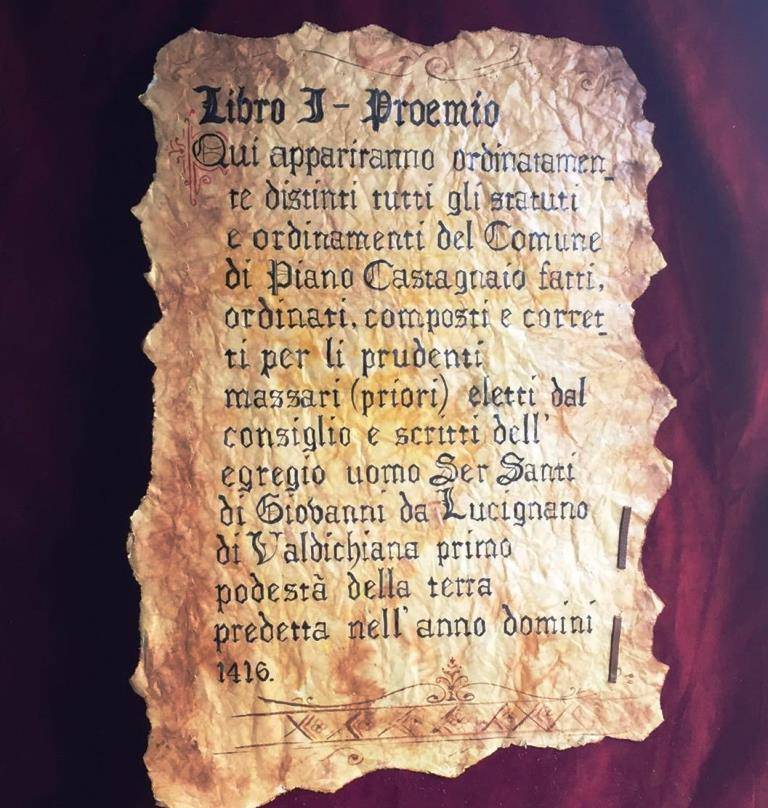 Libro I - Proemio
Qui appariranno ordinatamen_
te distinti tutti gli statuti
e ordinamenti del Comune
di Piano Castagnaio fatti,
ordinati, composti e corret_
ti per li prudenti
massari (priori) eletti dal
consiglio e scritti dell'
egregio uomo Ser Santi
di Giovanni da Lucignano
di Valdichiana primo
podestà della terra
predetta nell'anno domini
1416.